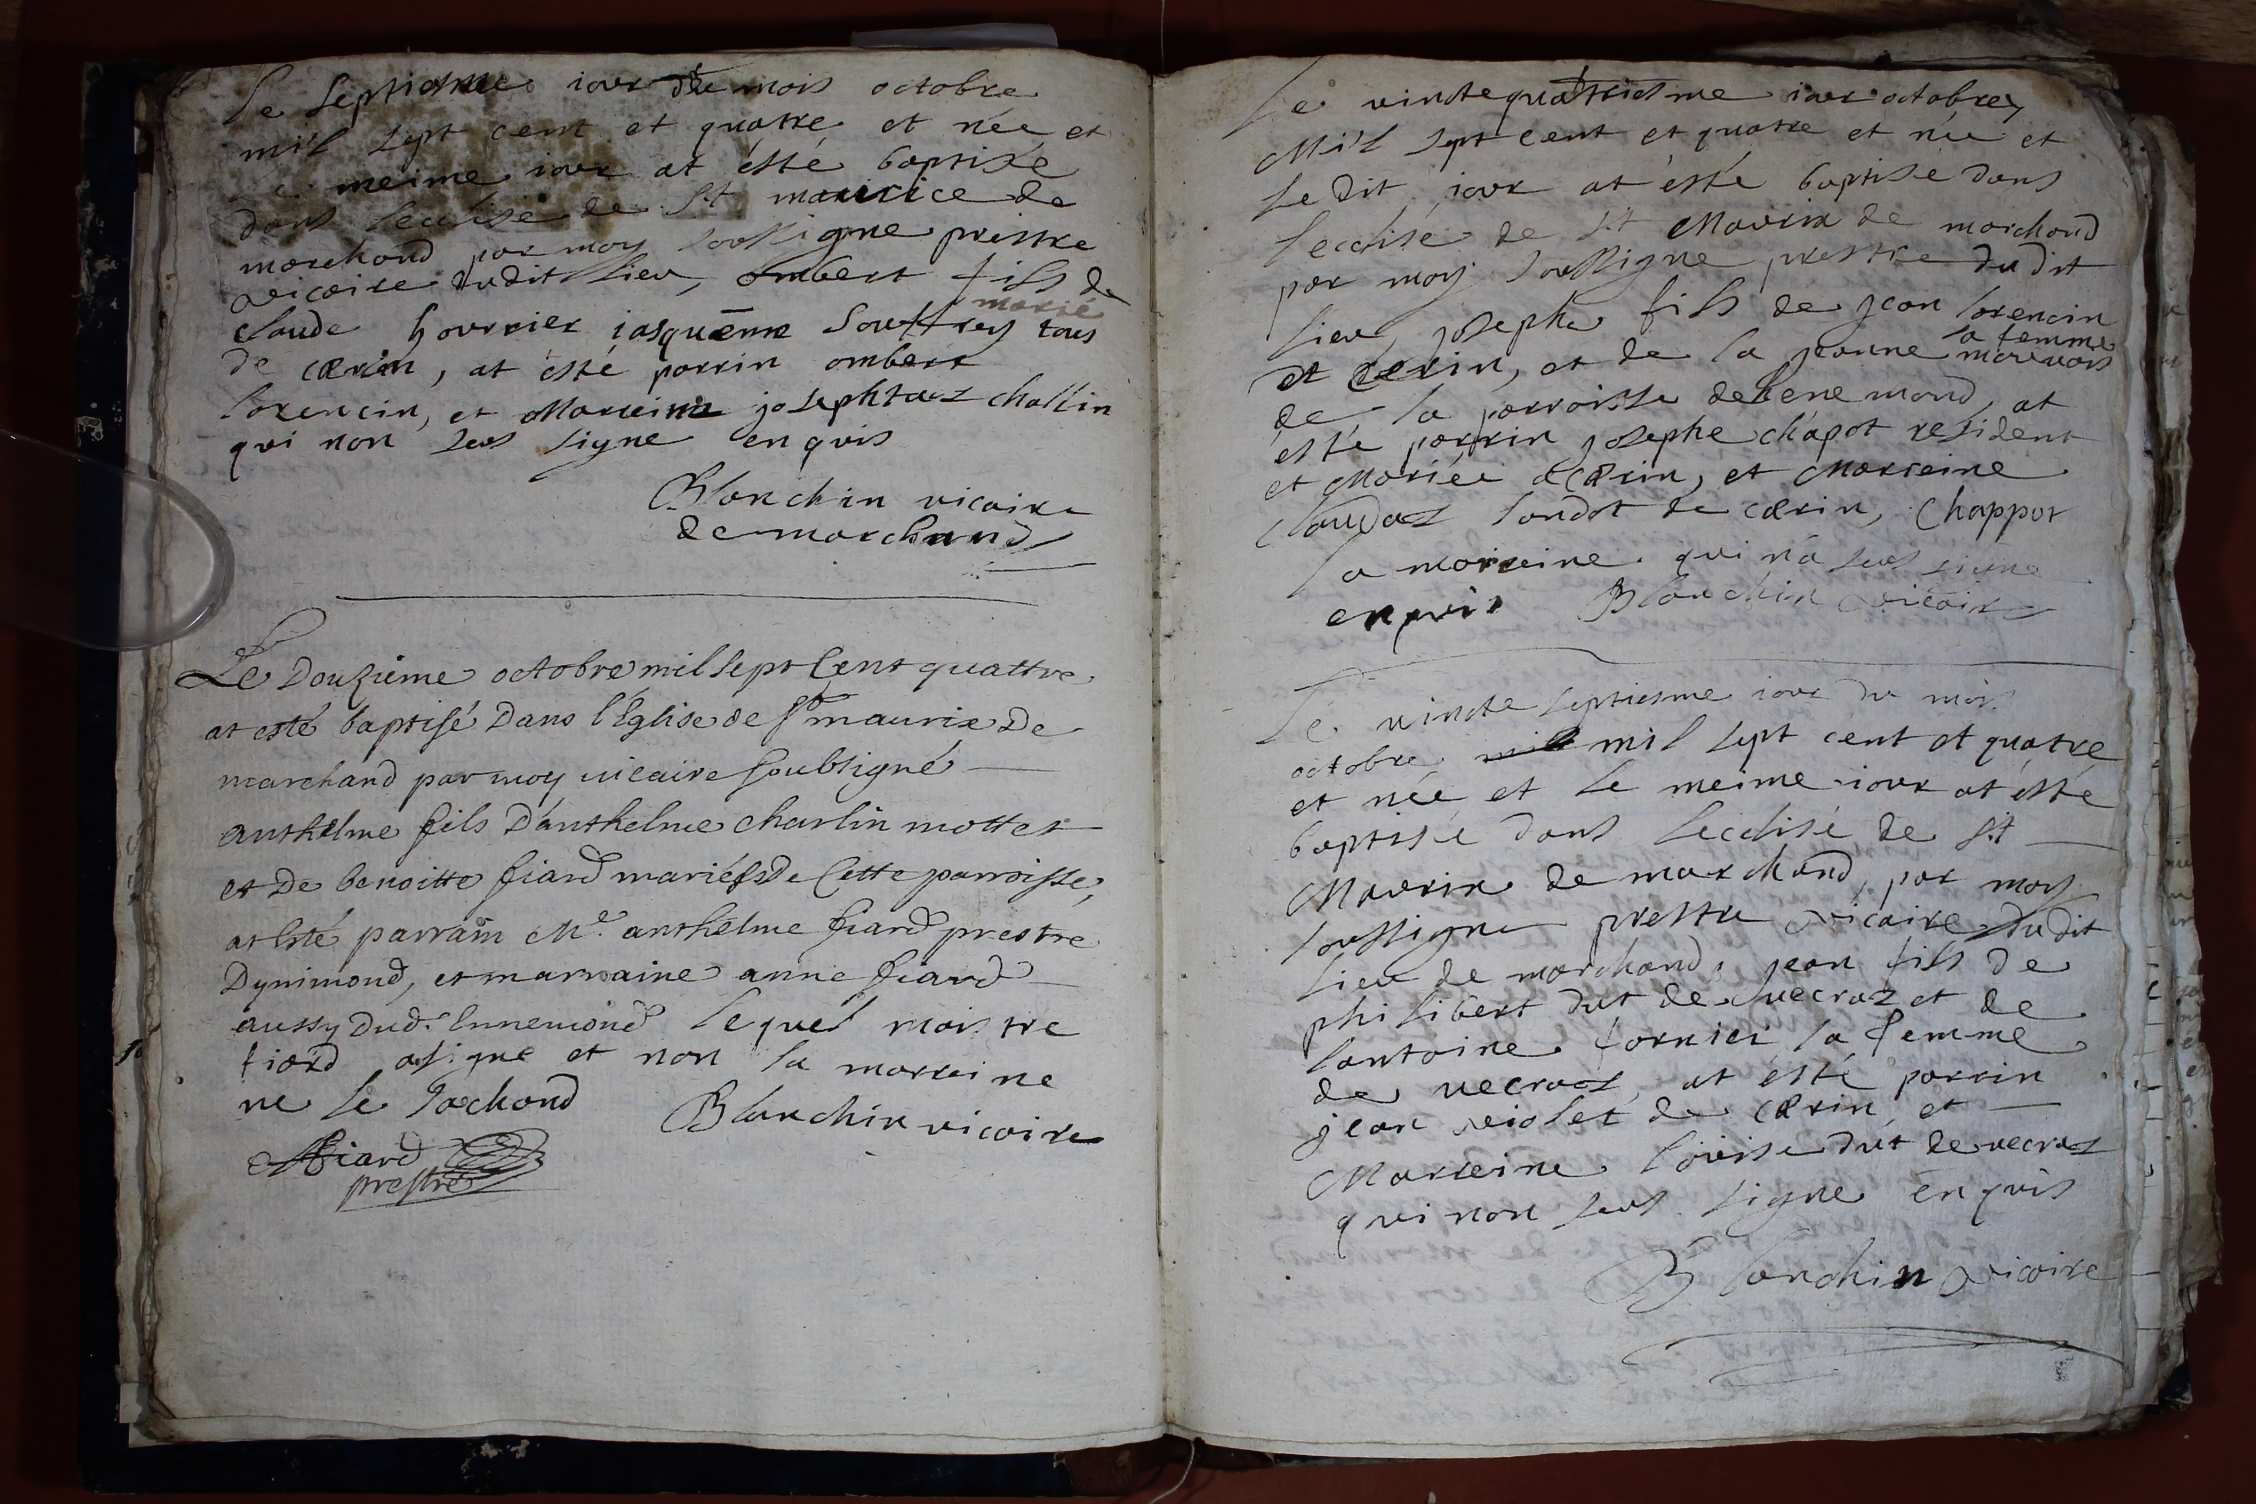 Le septiesme iour du mois octobre
mil sept cent et quatre et née et
le meime iour at ésté baptisé
dans lecclise de St maurice de
marchand par moy soussigne prestre
vicaire dudit lieu, ombert fils de
claude hourrier iasquēme souffrey marié tous
de cærin, at ésté parrin ombert
lorencin, et Marreine josephtaz challin
qui non seus signe enquis
Blanchin vicaire
de marchand
Le Douzieme octobre mil sept Cent quattre
at esté baptisé Dans l'Église de St maurix De
marchand par moy vicaire soubsigné
anthelme fils D'anthelme charlin mottet
et De benoitte fiard mariés De Cette parroisse,
at Esté parrain Mre anthelme fiard prestre
Dynimond, et marraine anne fiard
aussy dud. Ennemond lequel maistre
fiard a signe et non la marreine
ne le sachand
Blanchin vicaire
Fiard
prestre
Le vinctequatriesme iour octobre
Mil sept cent et quatre et née et
le dit iour at ésté baptisé dans
lecclise de St Maurix de marchand
par moy soussigne prestre du dit
lieu, josephe fils de jean lorencin
de cærin, et de la jeanne marevois la femme
de la parroisse de benemond, at
ésté parrin josephe chapot resident
et Mariée a cærin, et Marreine
Claudaz londot de cærin, Chappot
la marreine qui n'a seus signe
enquis Blanchin vicaire
Le vincte septiesme iour du mois
octobre mil sept cent et quatre
et née et le meime iour at ésté
baptisé dans lecclisé de St
Maurix de marchand, par moy
soussigne prestre vicaire dudit
lieu de marchand, jean fils de
philibert dut de vecraz et de
lantoine fornier la femme
de vecraz, at ésté parrin
jean violet de cærin, et
Marreine loüise dut de vecraz
qui non seus signe enquis
Blanchin vicaire